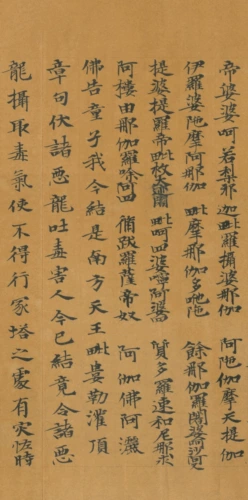 帝婆婆呵若梨那　迦毗羅攝婆那伽　阿陁伽摩天提伽
伊羅婆陁摩阿那伽　毗摩那伽多吔陁　餘那伽羅闍婆
提婆提羅帝毗枚大　毗呵四婆嚀阿婆　質多羅速和尼那求
阿樓由那伽羅唅阿四　脩跋羅薩帝奴　阿伽佛阿
佛告童子我今結是南方天王毗婁勒灌頂
章句伏諸惡龍吐毒害人今已結竟令諸惡
龍攝取毒氣使不得行冢塔之處有灾恠時